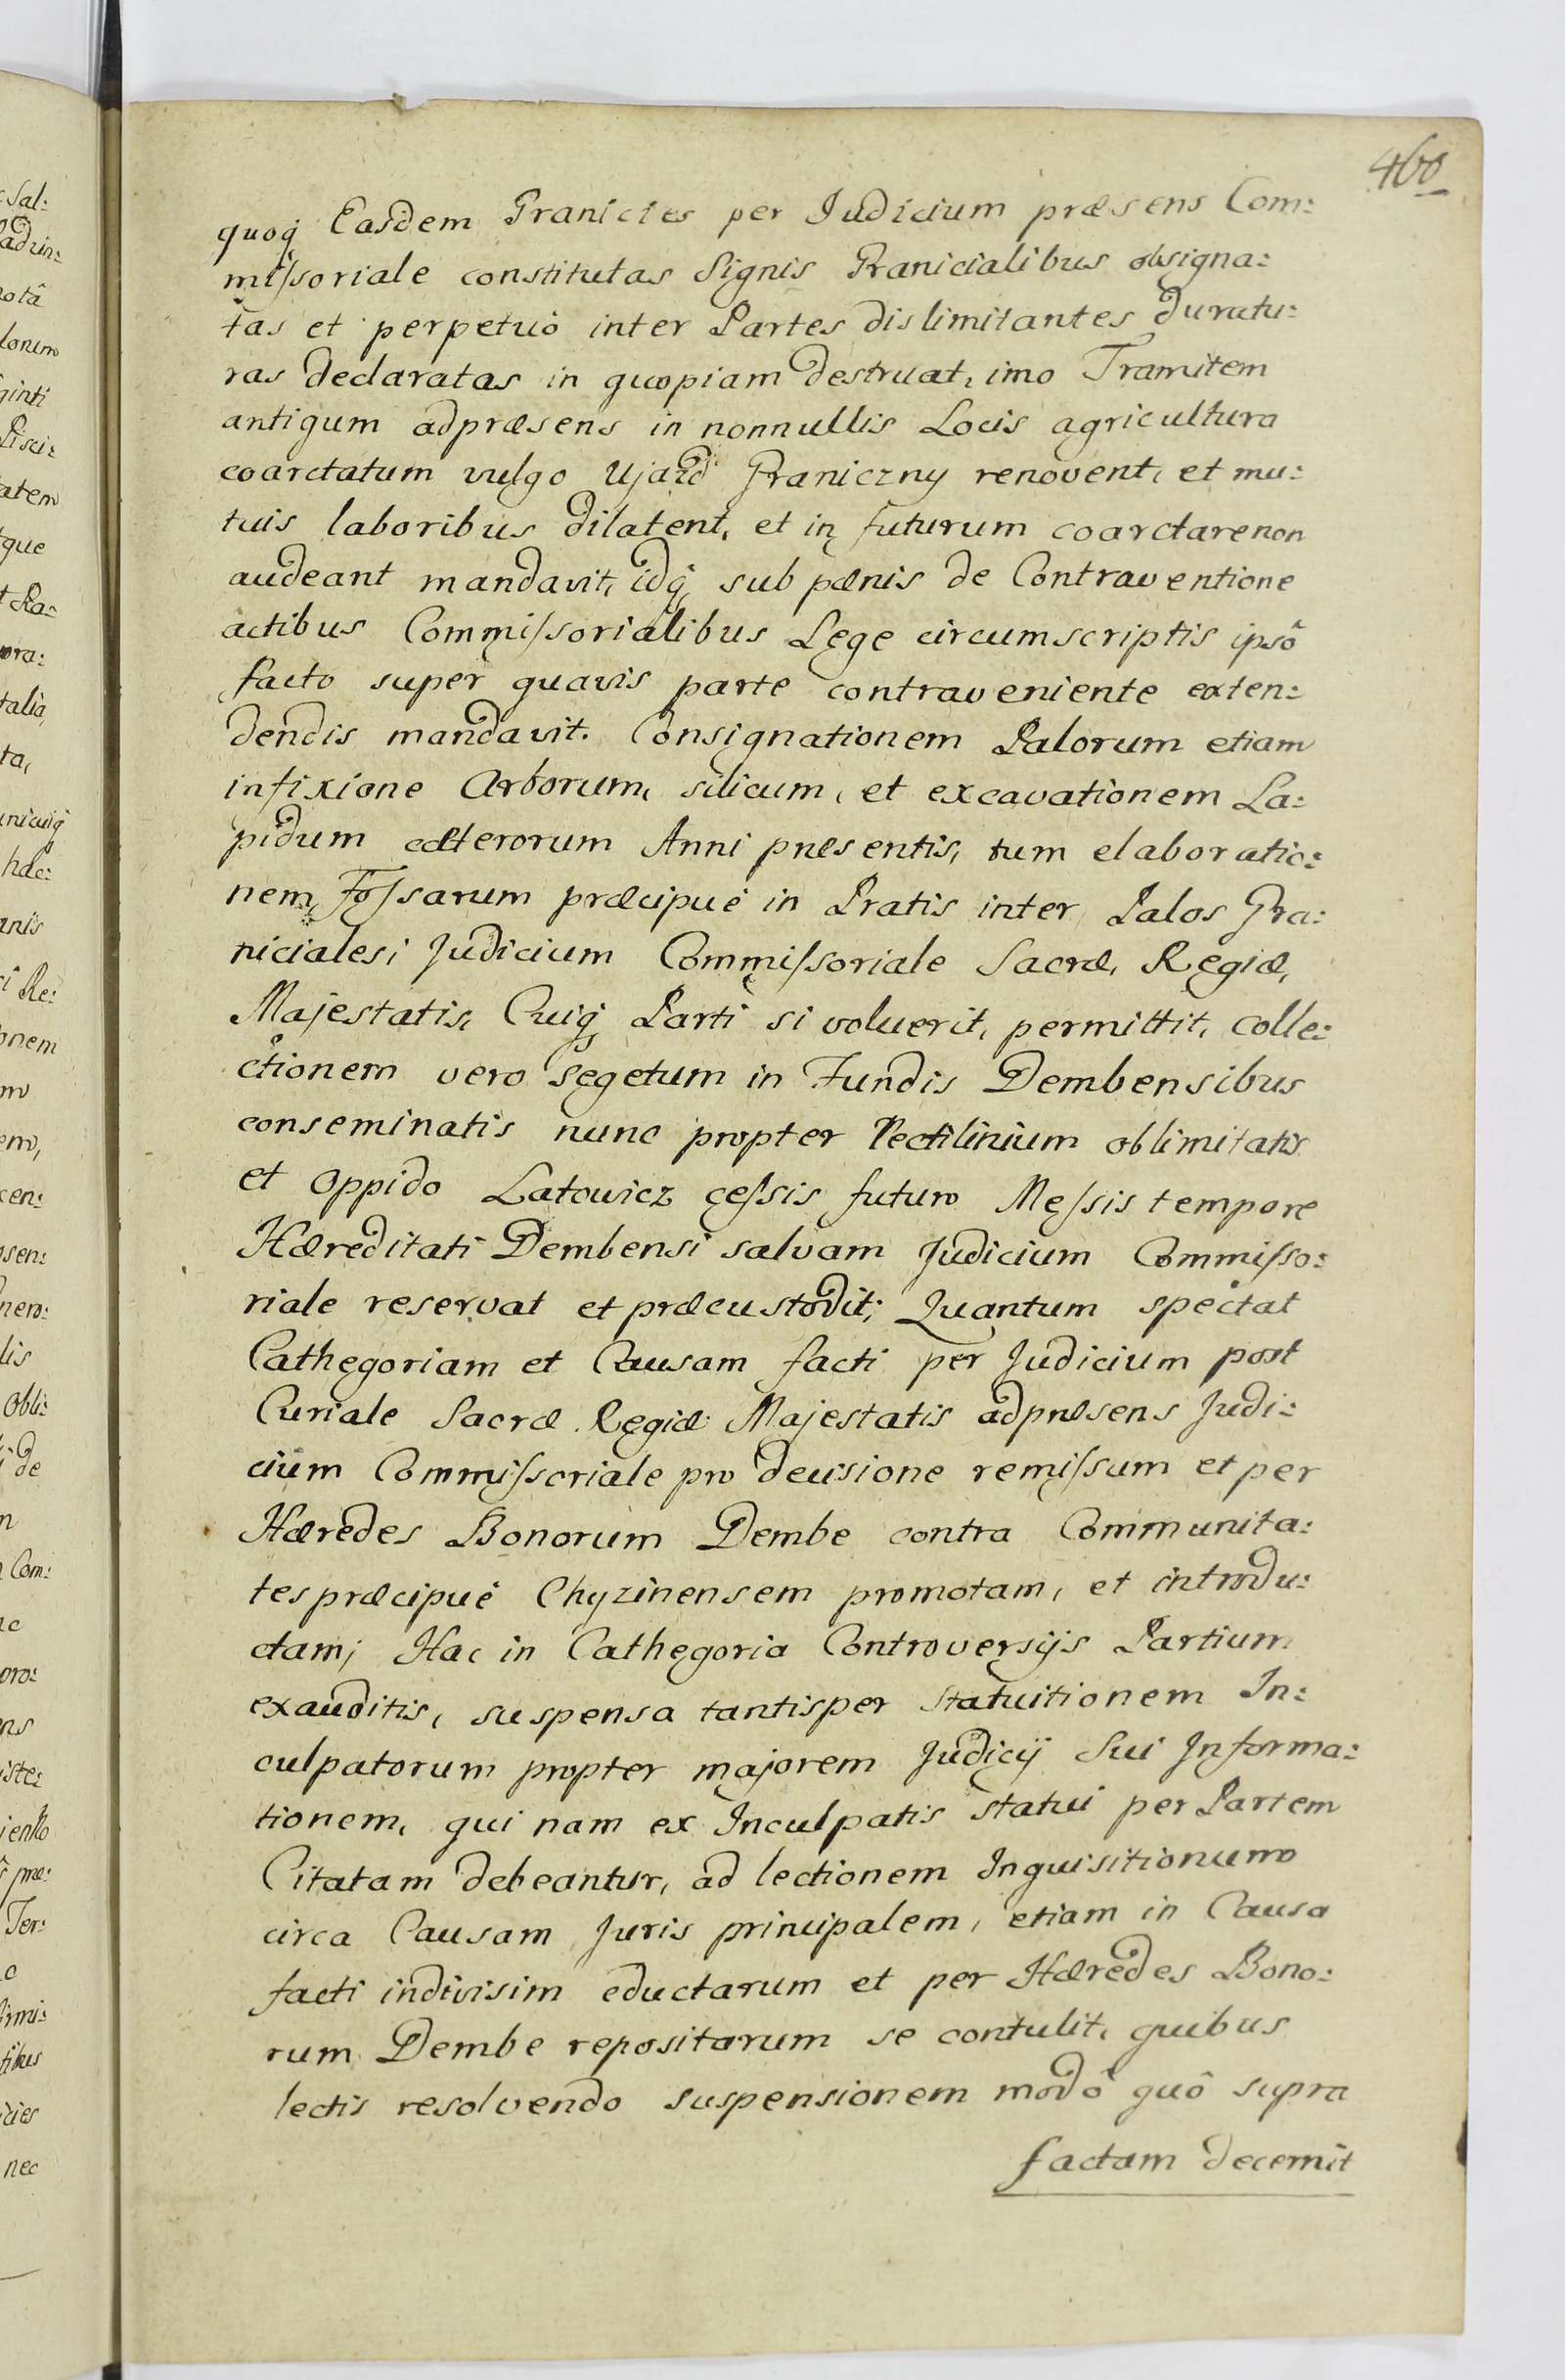 460
quoq Easdem Granicies per Judicium præsens Com:
missoriale constitutas Signis Granicialibus obsigna:
tas et perpetuò inter Partes dislimitantes duratu:
ras declaratas in quopiam destruat, imo Tramitem
antiquum adpræsens in nonnullis Locis agricultura
coarctatum vulgo Ujazd Graniczny renovent, et mu:
tuis laboribus dilatent, et in futurum coarctare non
audeant mandavit, idq, sub pænis de Contraventione
actibus Commissorialibus Lege circumscriptis ipsô
facto super quavis parte contraveniente exten:
dendis mandavit. Consignationem Palorum etiam
infixione Arborum, silicum, et excavationem La:
pidum cæterorum Anni præsentis, tum elaboratio:
nem Fossarum præcipuè in Pratis inter Palos Gra:
niciales; Judicium Commissoriale Sacræ, Regiæ,
Majestatis, Cuiq Parti si voluerit, permittit, colle:
ctionem vero Segetum in Fundis Dembensibus
conseminatis nunc propter Rectilinium oblimitatis
et Oppido Latowicz cessis futuro Messis tempore
Hæreditati Dembensi salvam Judicium Commisso:
riale reservat et præcustodit; Quantum spectat
Cathegoriam et Causam facti per Judicium post
Curiale Sacræ Regiæ Majestatis adpræsens Judi:
cium Commissoriale pro decisione remissum et per
Hæredes Bonorum Dembe contra Communita:
tes præcipuè Chyzinensem promotam, et introdu:
ctam; Hac in Cathegoria Controversijs Partium
exauditis, suspensa tantisper statuitionem In:
culpatorum propter majorem Judicij Sui Informa:
tionem, qui nam ex Inculpatis statui per Partem
Citatam debeantur, ad lectionem Inquisitionum
circa Causam Juris principalem, etiam in Causa
facti indivisim eductarum et per Hæredes Bono:
rum Dembe repositarum se contulit, quibus
lectis resolvendo suspensionem modô quô supra
factam decernit